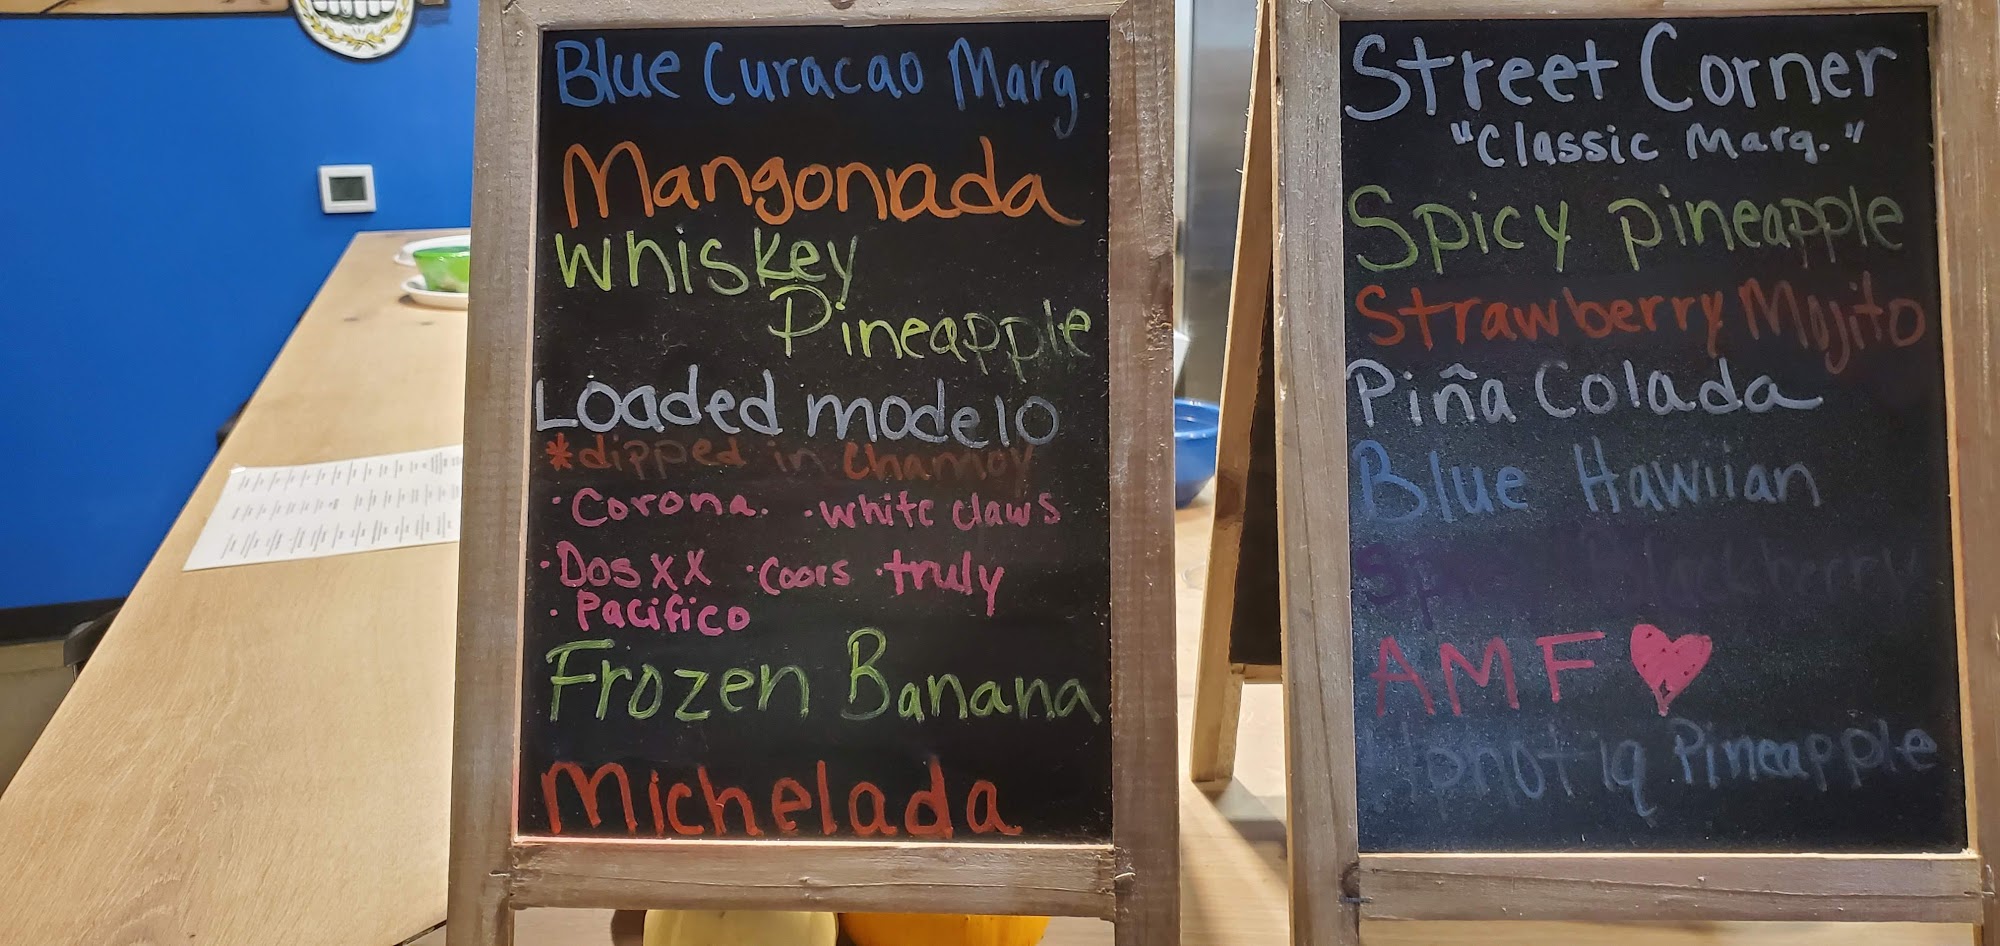 Blue Curacao Marg.
Mangonada
Whiskey
Pineapple
Loaded modelo
*dipped in Chamoy
· Corona. · white claws
· Dos XX · Coors · truly
· Pacifico
Frozen Banana
Michelada
Street Corner
"Classic Marg."
Spicy pineapple
Strawberry Mojito
Piña Colada
Blue Hawiian
Blackberry
AMF
Hpnotiq Pineapple